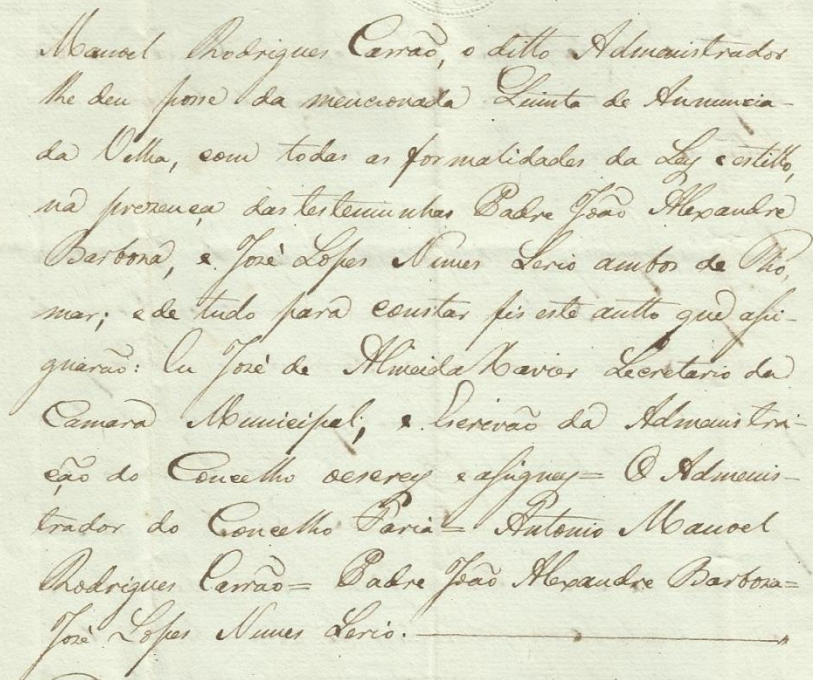 Manoel Rodrigues Carrão, o ditto Admenistrador
lhe deu posse da mencionada Quinta de Annuncia-
da Velha, com todas as formalidades da Ley e estillo,
na prezença das testemunhas Padre João Alexandre
Barboza, e José Lopes Nunes Serio ambos de Tho-
mar; e de tudo para constar fis este autto que assi-
gnarão: Eu José de Almeida Xavier Secretario da
Camara Municipal, e Escrivão da Admenistra-
ção do Concelho o escrevy e assigney = O Admenis-
trador do Concelho Faria = Antonio Manoel
Rodrigues Carrão = Padre João Alexandre Barboza =
José Lopes Nunes Serio.